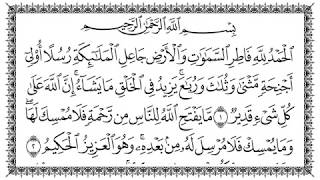 بِسْمِ اللَّهِ الرَّحْمَٰنِ الرَّحِيمِ
الْحَمْدُ لِلَّهِ فَاطِرِ السَّمَٰوَٰتِ وَالْأَرْضِ جَاعِلِ الْمَلَٰٓئِكَةِ رُسُلًا أُولِىٓ
أَجْنِحَةٍ مَثْنَىٰ وَثُلَٰثَ وَرُبَٰعَ ۚ يَزِيدُ فِى الْخَلْقِ مَا يَشَآءُ ۚ إِنَّ اللَّهَ عَلَىٰ
كُلِّ شَىْءٍ قَدِيرٌ ١ مَا يَفْتَحِ اللَّهُ لِلنَّاسِ مِنْ رَحْمَةٍ فَلَا مُمْسِكَ لَهَا ۖ
وَمَا يُمْسِكْ فَلَا مُرْسِلَ لَهُ مِنْ بَعْدِهِ ۚ وَهُوَ الْعَزِيزُ الْحَكِيمُ ٢